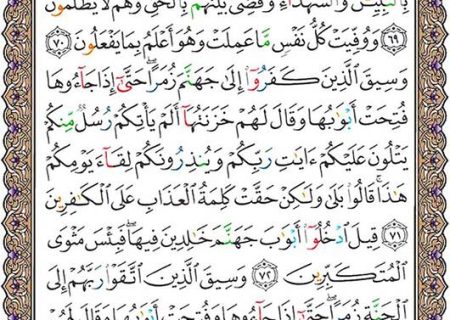 بِٱلنَّبِيِّـۧنَ وَٱلشُّهَدَآءِ وَقُضِىَ بَيْنَهُم بِٱلْحَقِّ وَهُمْ لَا يُظْلَمُونَ
﴿٦٩﴾ وَوُفِّيَتْ كُلُّ نَفْسٍ مَّا عَمِلَتْ وَهُوَ أَعْلَمُ بِمَا يَفْعَلُونَ ﴿٧٠﴾
وَسِيقَ ٱلَّذِينَ كَفَرُوٓا۟ إِلَىٰ جَهَنَّمَ زُمَرًا ۖ حَتَّىٰٓ إِذَا جَآءُوهَا
فُتِحَتْ أَبْوَٰبُهَا وَقَالَ لَهُمْ خَزَنَتُهَآ أَلَمْ يَأْتِكُمْ رُسُلٌ مِّنكُمْ
يَتْلُونَ عَلَيْكُمْ ءَايَٰتِ رَبِّكُمْ وَيُنذِرُونَكُمْ لِقَآءَ يَوْمِكُمْ
هَٰذَا ۚ قَالُوا۟ بَلَىٰ وَلَٰكِنْ حَقَّتْ كَلِمَةُ ٱلْعَذَابِ عَلَى ٱلْكَٰفِرِينَ
﴿٧١﴾ قِيلَ ٱدْخُلُوٓا۟ أَبْوَٰبَ جَهَنَّمَ خَٰلِدِينَ فِيهَا ۖ فَبِئْسَ مَثْوَى
ٱلْمُتَكَبِّرِينَ ﴿٧٢﴾ وَسِيقَ ٱلَّذِينَ ٱتَّقَوْا۟ رَبَّهُمْ إِلَى
ٱلْجَنَّةِ زُمَرًا ۖ حَتَّىٰٓ إِذَا جَآءُوهَا وَفُتِحَتْ أَبْوَٰبُهَا وَقَالَ لَهُمْ